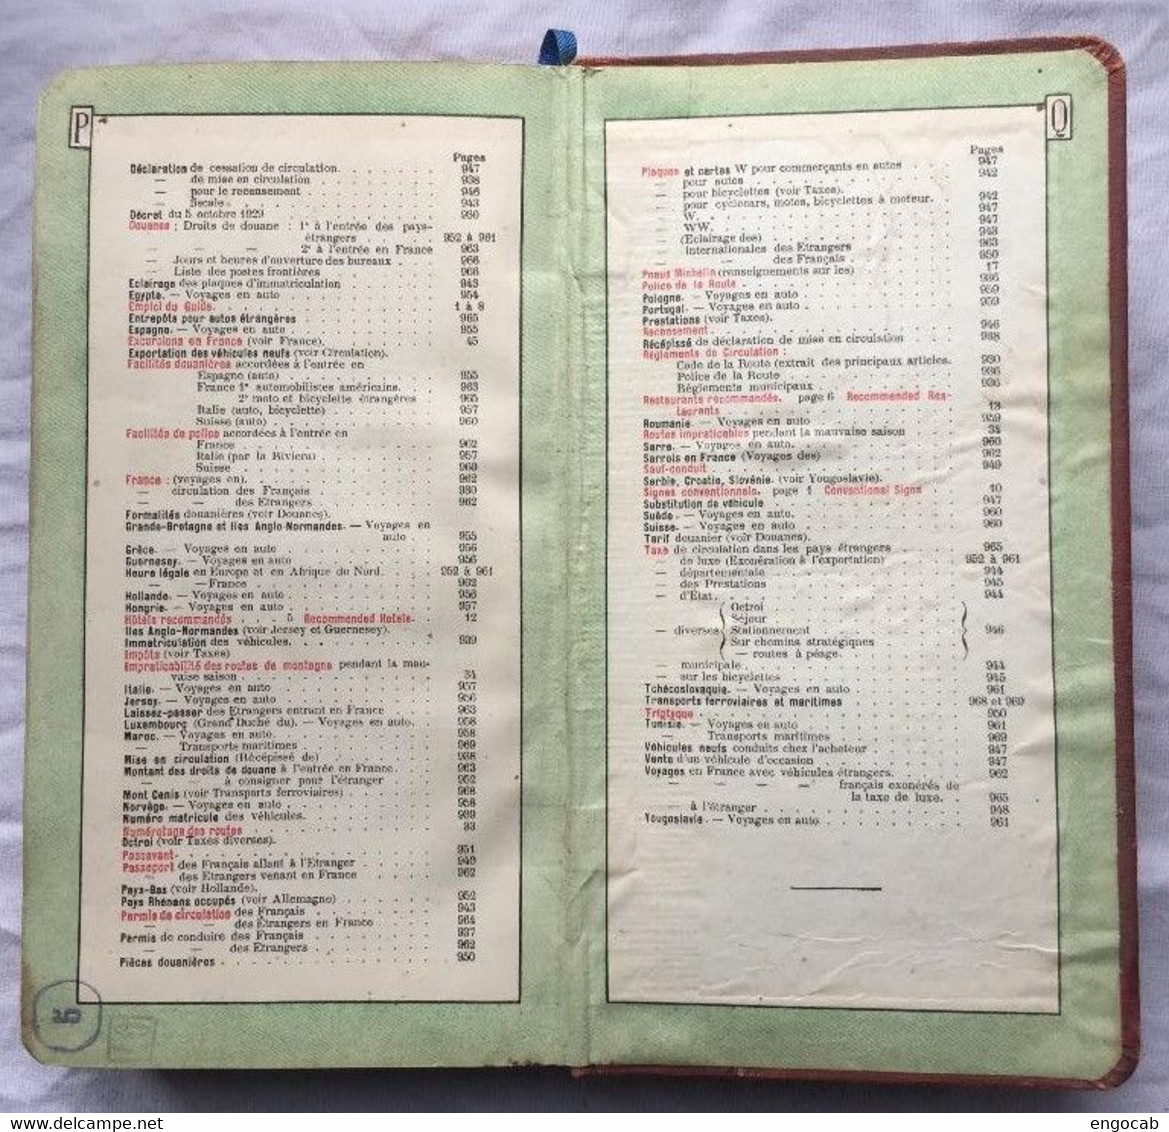 P
Pages
Déclaration de cessation de circulation. 947
— de mise en circulation 938
— pour le recensement 946
— fiscale. 943
Décret du 5 octobre 1929 930
Douanes ; Droits de douane : 1° à l'entrée des pays-
étrangers 952 à 961
— — — 2° à l'entrée en France 963
— Jours et heures d'ouverture des bureaux 966
— Liste des postes frontières 966
Eclairage des plaques d'immatriculation 943
Egypte. — Voyages en auto 954
Emploi du Guide. 1 à 8
Entrepôts pour autos étrangères 965
Espagne. — Voyages en auto 955
Excursions en France (voir France). 45
Exportation des véhicules neufs (voir Circulation).
Facilités douanières accordées à l'entrée en
Espagne (auto) 955
France 1° automobilistes américains. 963
2° moto et bicyclette étrangères 965
Italie (auto, bicyclette) 957
Suisse (auto) 960
Facilités de police accordées à l'entrée en
France 962
Italie (par la Riviera) 957
Suisse 960
France : (voyages en). 962
— circulation des Français 930
— — des Etrangers 962
Formalités douanières (voir Douanes).
Grande-Bretagne et Iles Anglo-Normandes. — Voyages en
auto 955
Grèce. — Voyages en auto 956
Guernesey. — Voyages en auto 956
Heure légale en Europe et en Afrique du Nord. 952 à 961
— — France 962
Hollande. — Voyages en auto 956
Hongrie. — Voyages en auto 957
Hôtels recommandés 5 Recommended Hotels. 12
Iles Anglo-Normandes (voir Jersey et Guernesey).
Immatriculation des véhicules. 939
Impôts (voir Taxes)
Impraticabilité des routes de montagne pendant la mau-
vaise saison 34
Italie. — Voyages en auto 957
Jersey. — Voyages en auto 956
Laissez-passer des Etrangers entrant en France 963
Luxembourg (Grand Duché du). — Voyages en auto. 958
Maroc. — Voyages en auto. 958
— Transports maritimes 969
Mise en circulation (Récépissé de) 938
Montant des droits de douane à l'entrée en France. 963
— — à consigner pour l'étranger 952
Mont Cenis (voir Transports ferroviaires) 968
Norvège. — Voyages en auto 958
Numéro matricule des véhicules. 939
Numérotage des routes 33
Octroi (voir Taxes diverses).
Passavant. 951
Passeport des Français allant à l'Etranger 949
— des Etrangers venant en France 962
Pays-Bas (voir Hollande).
Pays Rhénans occupés (voir Allemagne) 952
Permis de circulation des Français 943
— — des Etrangers en France 964
Permis de conduire des Français 937
— — des Etrangers 962
Pièces douanières 950
5
Q
Pages
Plaques et cartes W pour commerçants en autos 947
— pour autos 942
— pour bicyclettes (voir Taxes).
— pour cyclecars, motos, bicyclettes à moteur. 942
— W. 947
— WW. 947
— (Eclairage des) 943
— internationales des Etrangers 963
— — des Français 950
Pneus Michelin (renseignements sur les) 17
Police de la Route 936
Pologne. — Voyages en auto 959
Portugal. — Voyages en auto 959
Prestations (voir Taxes).
Recensement. 946
Récépissé de déclaration de mise en circulation 938
Règlements de Circulation :
Code de la Route (extrait des principaux articles. 930
Police de la Route 936
Règlements municipaux 936
Restaurants recommandés. page 6 Recommended Res-
taurants 13
Roumanie. — Voyages en auto 959
Routes impraticables pendant la mauvaise saison 34
Sarre. — Voyages en auto. 960
Sarrois en France (Voyages des) 962
Sauf-conduit 949
Serbie, Croatie, Slovénie. (voir Yougoslavie).
Signes conventionnels. page 4 Conventional Signs 10
Substitution de véhicule 947
Suède. — Voyages en auto. 960
Suisse. — Voyages en auto. 960
Tarif douanier (voir Douanes).
Taxe de circulation dans les pays étrangers 965
— de luxe (Exonération à l'exportation) 952 à 961
— départementale 944
— des Prestations 945
— d'État. 944
Octroi
Séjour
— diverses Stationnement 946
Sur chemins stratégiques
— routes à péage.
— municipale. 944
— sur les bicyclettes 945
Tchécoslovaquie. — Voyages en auto 961
Transports ferroviaires et maritimes 968 et 969
Triptyque 950
Tunisie. — Voyages en auto 961
— Transports maritimes 969
Véhicules neufs conduits chez l'acheteur 947
Vente d'un véhicule d'occasion 947
Voyages en France avec véhicules étrangers. 962
— — — — français exonérés de
la taxe de luxe. 965
— à l'étranger 948
Yougoslavie. — Voyages en auto 961
engocab